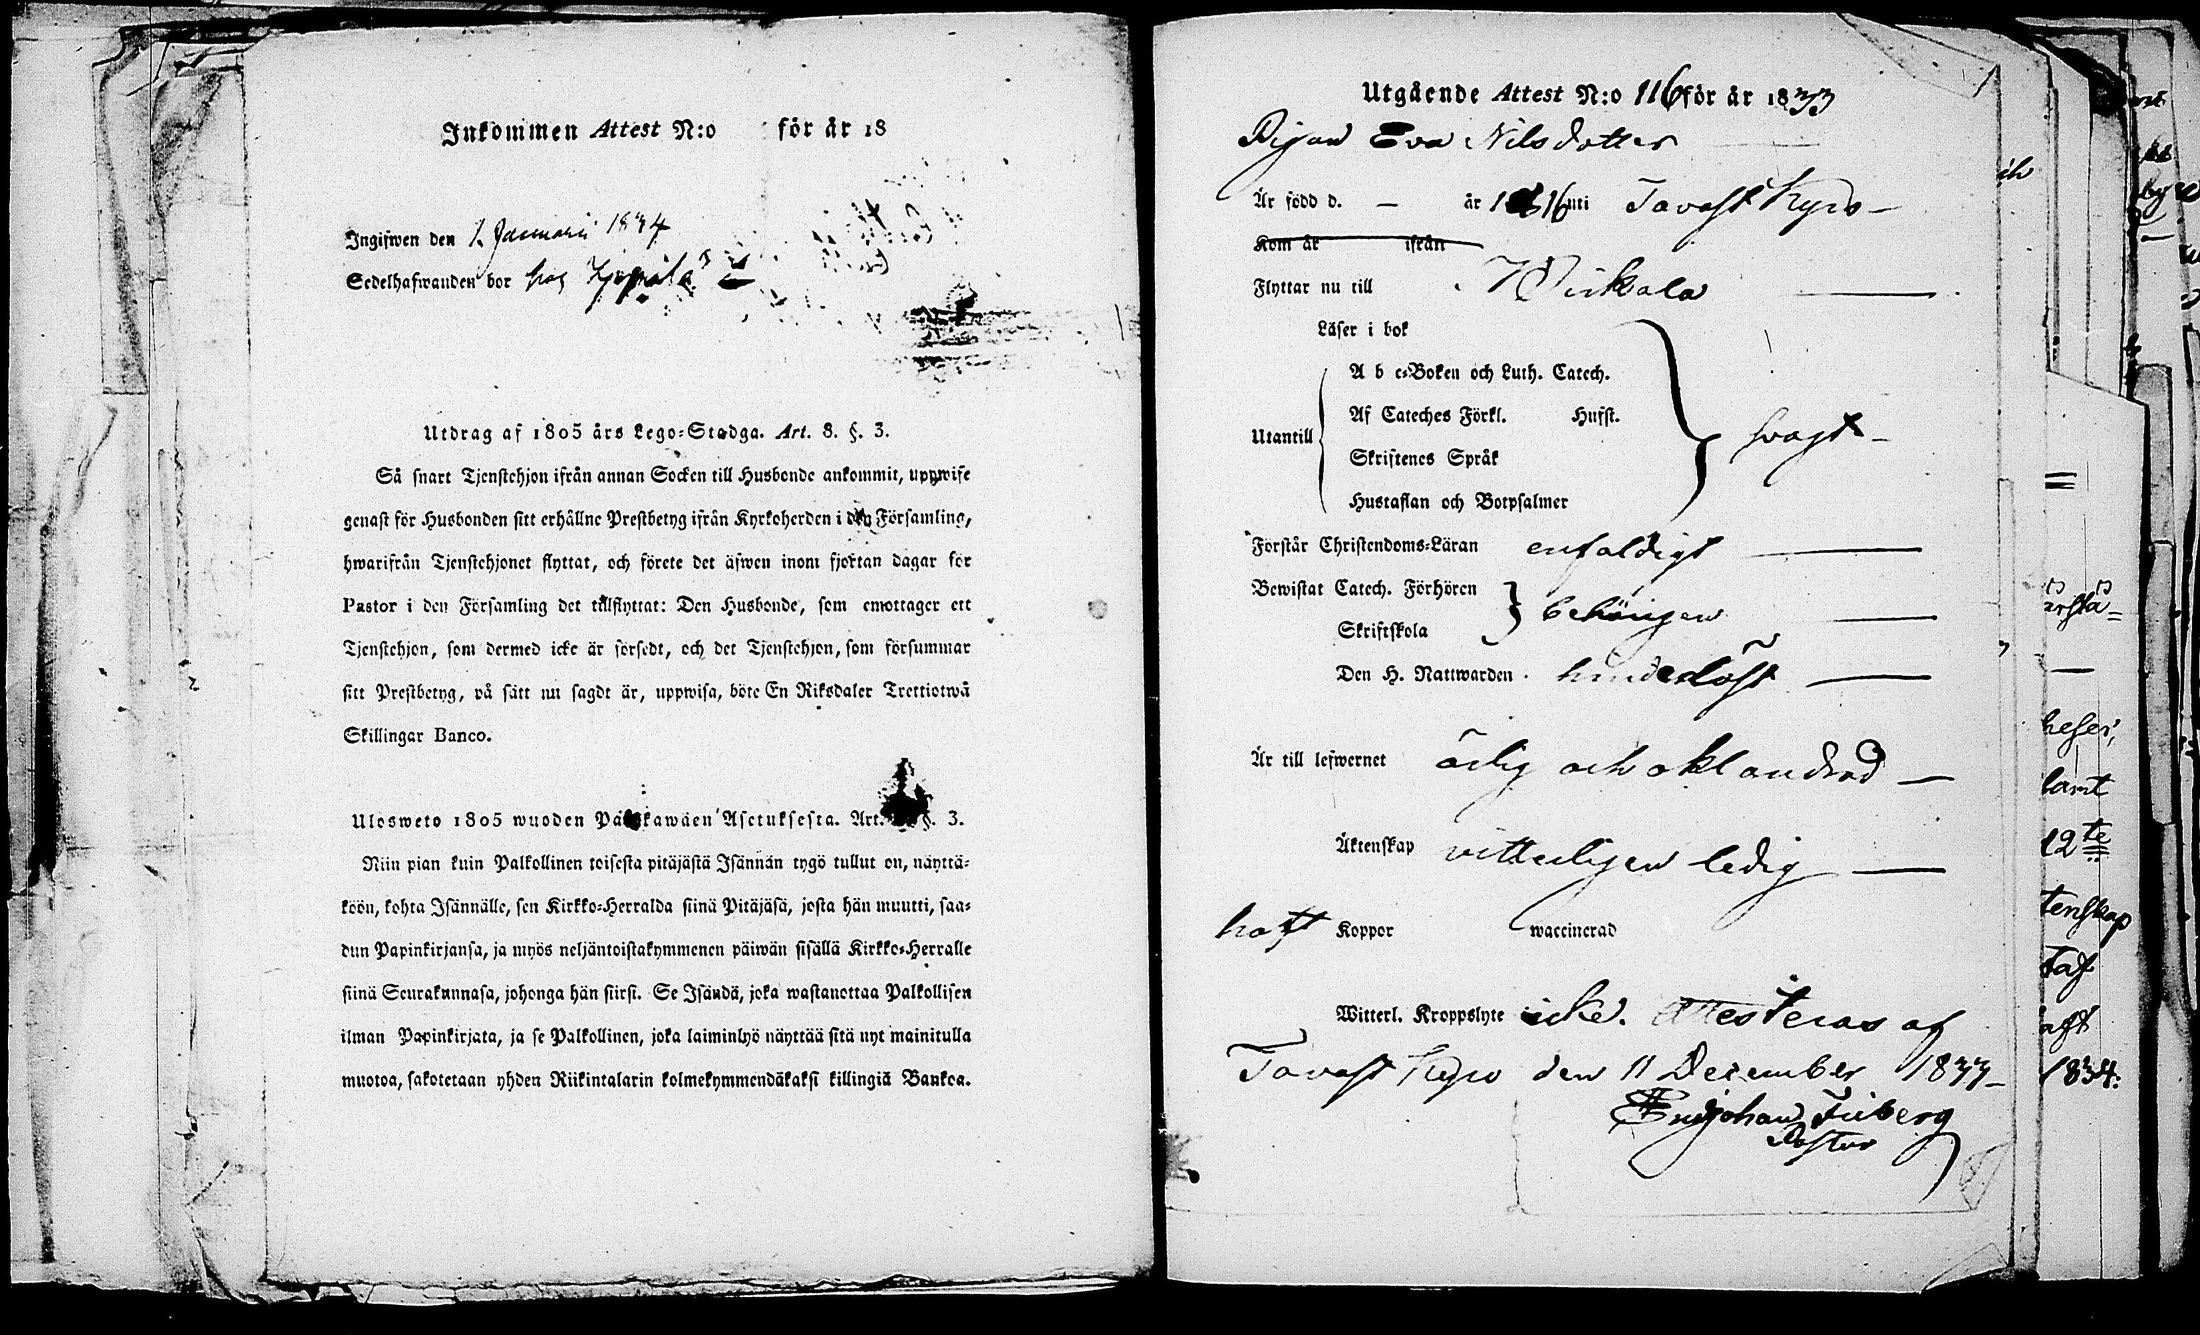 Inkommen Attest N:o för år 18
Ingifwen den 1. Januarii 1834
Sedelhafwanden bor hos
Utdrag af 1805 års Lego-Stadga. Art. 8. §. 3.
Så snart Tjenstehjon ifrån annan Socken till Husbonde ankommit, uppwise
genast för Husbonden sitt erhållne Prestbetyg ifrån Kyrkoherden i den Församling,
hwarifrån Tjenstehjonet flyttat, och förete det äfwen inom fjortan dagar för
Pastor i den Församling det tillflyttat: Den Husbonde, som emottager ett
Tjenstehjon, som dermed icke är försedt, och det Tjenstehjon, som försummar
sitt Prestbetyg, på sätt nu sagdt är, uppwisa, böte En Riksdaler Trettiotwå
Skillingar Banco.
Ulosweto 1805 wuoden Palkkawäen Asetuksesta. Art. §. 3.
Niin pian kuin Palkollinen toisesta pitäjästä Isännän tygö tullut on, näyttä-
köön, kohta Isännälle, sen Kirkko-Herralda siinä Pitäjäsä, josta hän muutti, saa-
dun Papinkirjansa, ja myös neljäntoistakymmenen päiwän sisällä Kirkko-Herralle
siinä Seurakunnasa, johonga hän siirsi. Se Isändä, joka wastanottaa Palkollisen
ilman Papinkirjata, ja se Palkollinen, joka laiminlyö näyttää sitä nyt mainitulla
muotoa, sakotetaan yhden Riikintalarin kolmekymmendäkaksi killingiä Bankoa.
Utgående Attest N:o 116 för år 1833
Pigan Eva Nilsdotter
Är född d. — år 1816 uti Tavast Kyro —
Kom år ifrån
Flyttar nu till Wirkala
Läser i bok
A b c-Boken och Luth. Catech.
Af Cateches Förkl. Hufst.
Utantill svagt —
Skriftenes Språk
Hustaflan och Botpsalmer
Förstår Christendoms-Läran enfaldigt
Bewistat Catech. Förhören behörigen
Skriftskola
Den H. Nattwarden hinderlöst
Är till lefwernet ärlig och oklandrad —
Äktenskap vitterligen ledig
haft Koppor waccinerad
Witterl. Kroppslyte icke. Attesteras af
Tavast Kyro den 11 December 1833 —
Johan Friberg
Pastor
12te
tenskap
1834.